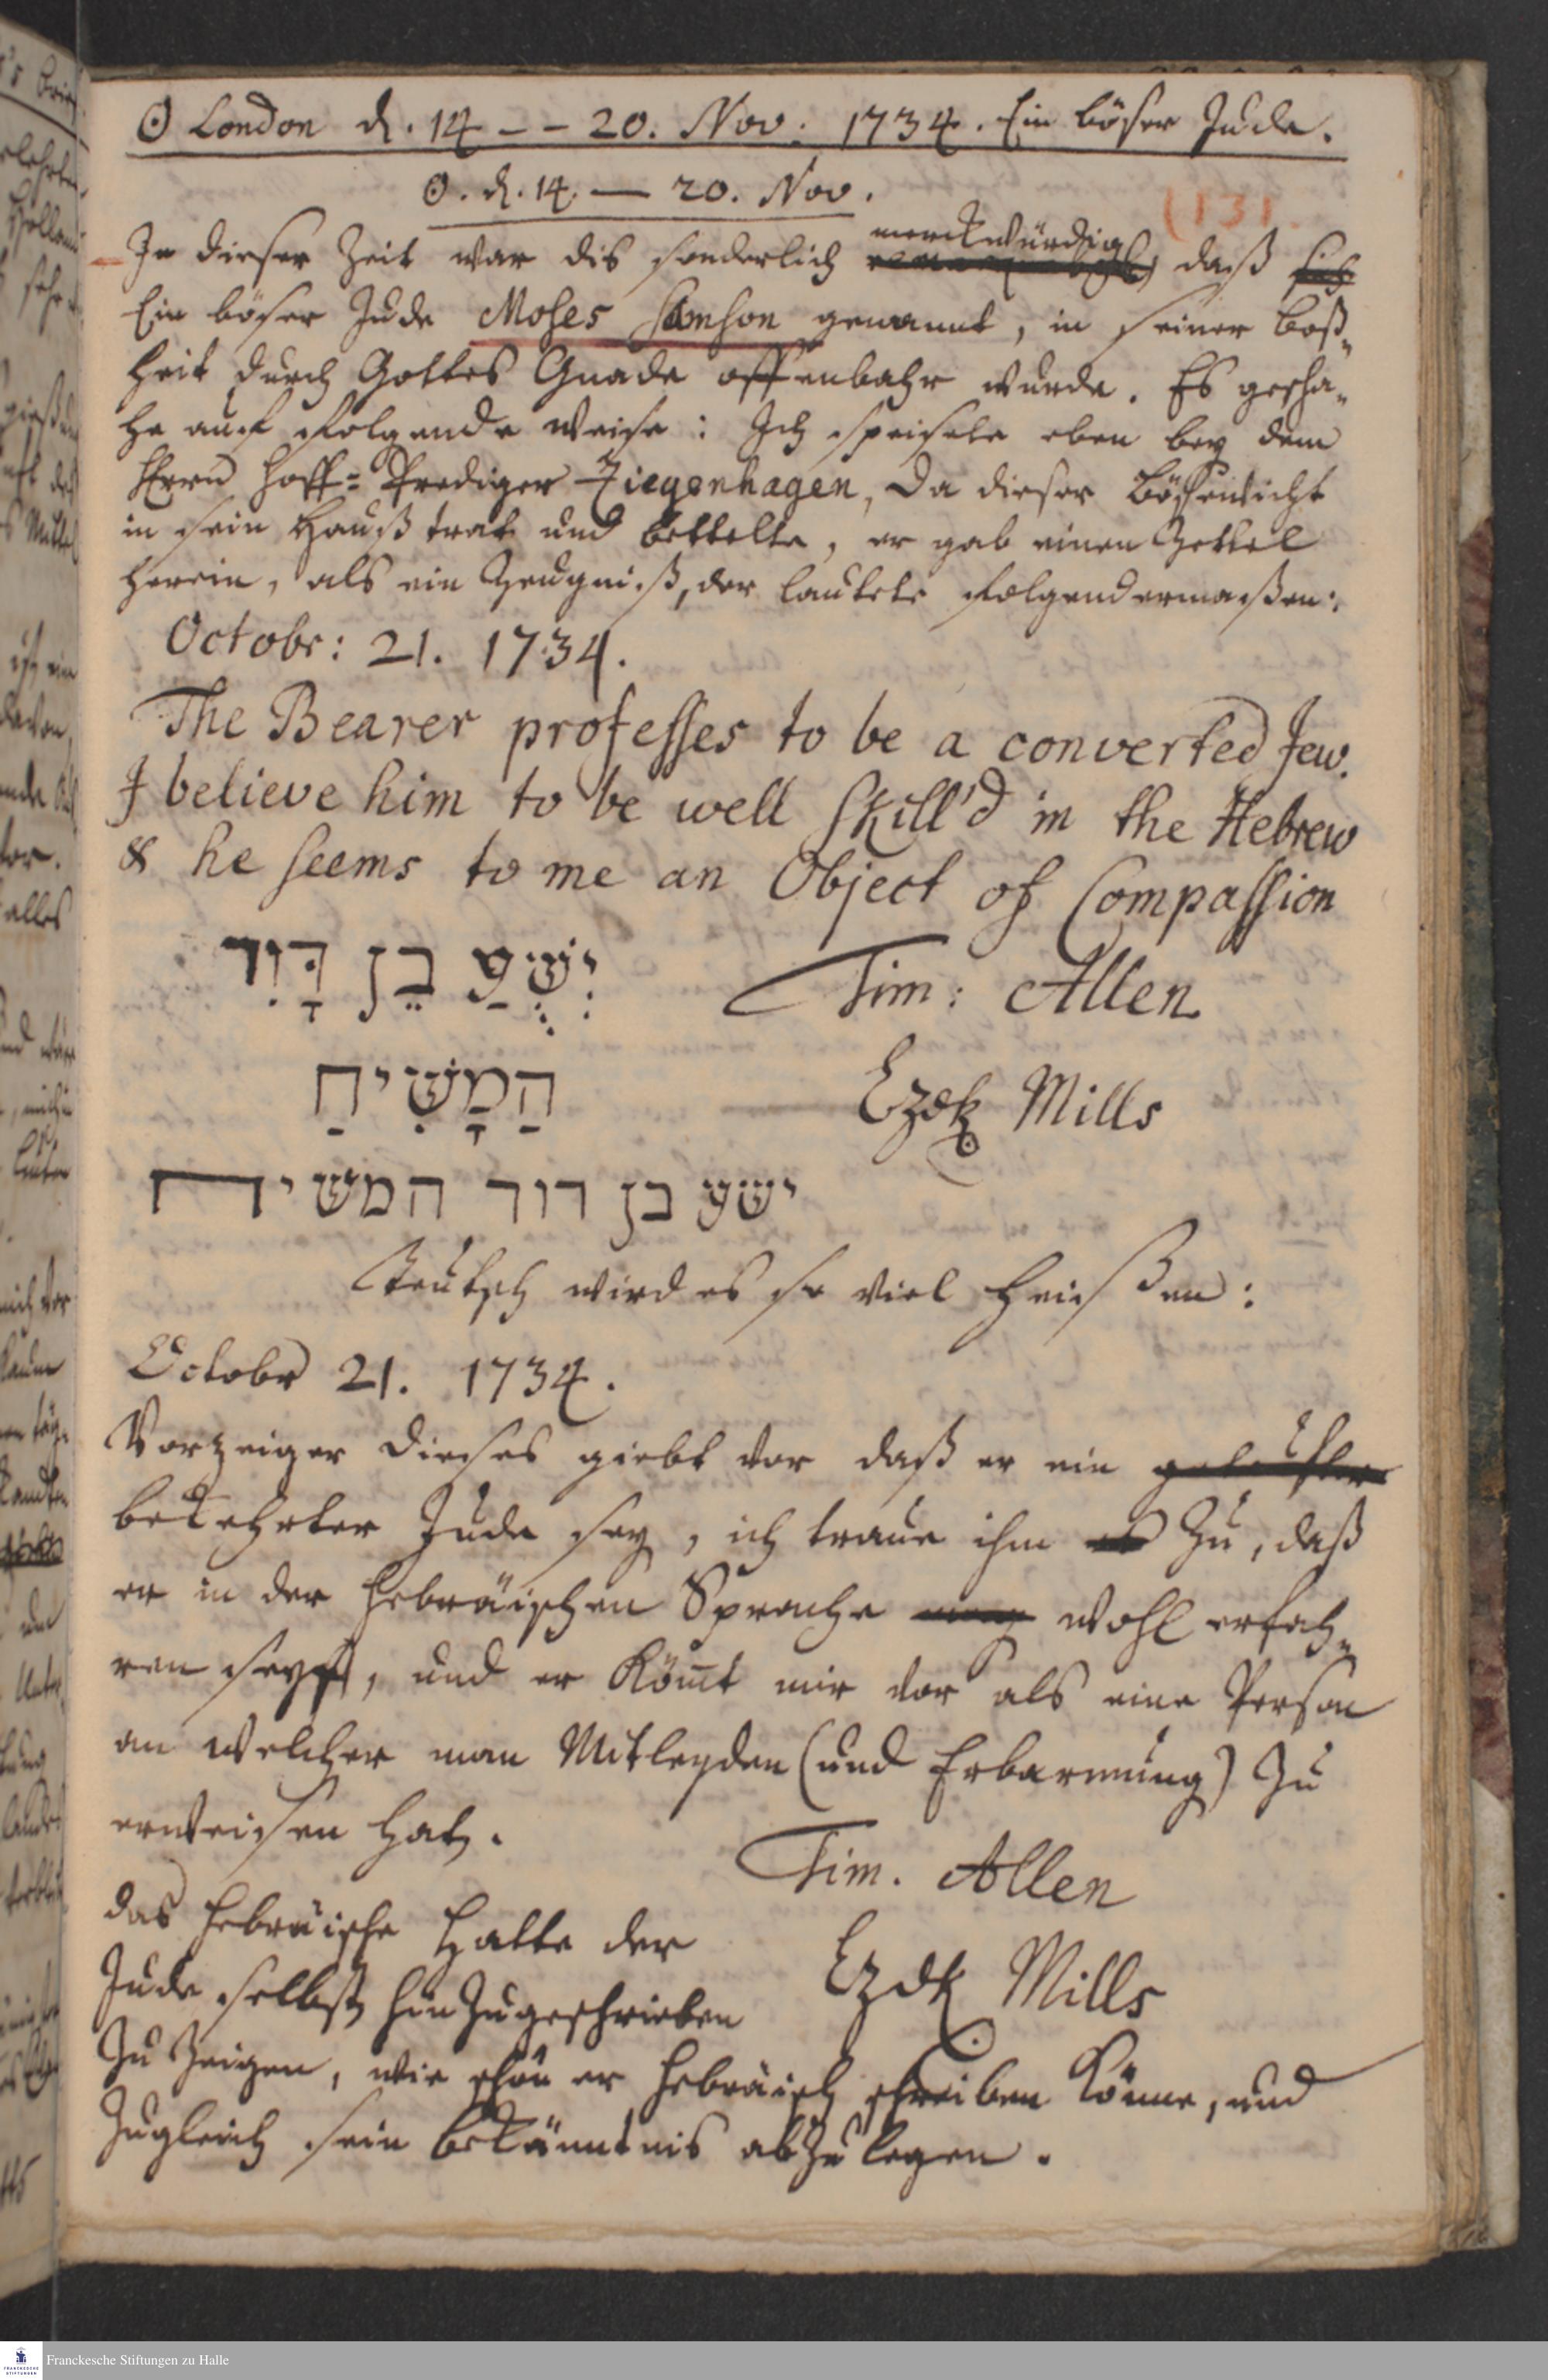 ☉ London d. 14 -- 20. Nov. 1734. Ein böser Jude.
☉. d. 14. — 20. Nov.
(131.
In dieser Zeit war dis sonderlich merckwürdig daß sich
Ein böser Jude Moses Samson genannt, in seiner Boß-
heit durch Gottes Gnade offenbahr wurde. Es gescha-
he auf folgende Weise: Ich speisete eben bey dem
Herrn Hoff-Prediger Ziegenhagen, da dieser Bösewicht
in sein Hauß trat und bettelte, er gab einen Zettel
herein, als ein Zeugniß, der lautete folgendermaßen:
Octobr: 21. 1734.
The Bearer professes to be a converted Jew.
I believe him to be well skill'd in the Hebrew
& he seems to me an Object of Compassion
יְשֻׁעַ בֵּן דָּוִד Tim: Allen
הַמָשִׁיחַ Ezek Mills
ישע בן דוד המשיח
Teutsch wird es so viel heißen:
Octobr 21. 1734.
Vorzeiger dieses giebt vor daß er ein getaufter
bekehrter Jude sey, ich traue ihm es zu, daß
er in der hebräischen Sprache wohl erfah-
ren sey, und er kömt mir vor als eine Person
an welcher man Mitleyden (und Erbarmung) zu
erweisen hat.
Tim. Allen
das hebräische hatte der
Ezek Mills
Jude selbst hinzugeschrieben
zu zeigen, wie schön er hebräisch schreiben könne, und
zugleich sein bekänntnis abzulegen.
Franckesche Stiftungen zu Halle